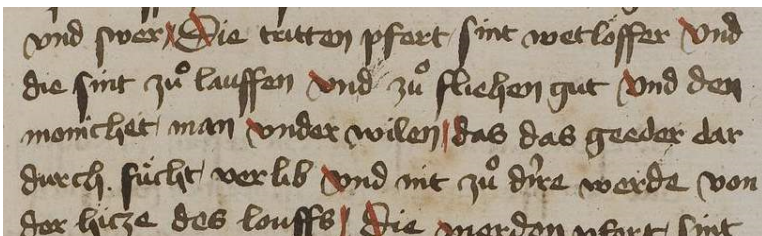 vnd swer Die tritten pfert sint wetlöffer Vnd
die sint zuͦ lauffen Vnd zuͦ fliehen gut Vnd den
monichet man vnder wilen das das geeder dar
durch fücht verlib Vnd nit zuͦ dire werde von
der hicze des louffs Die vierden pfert sint